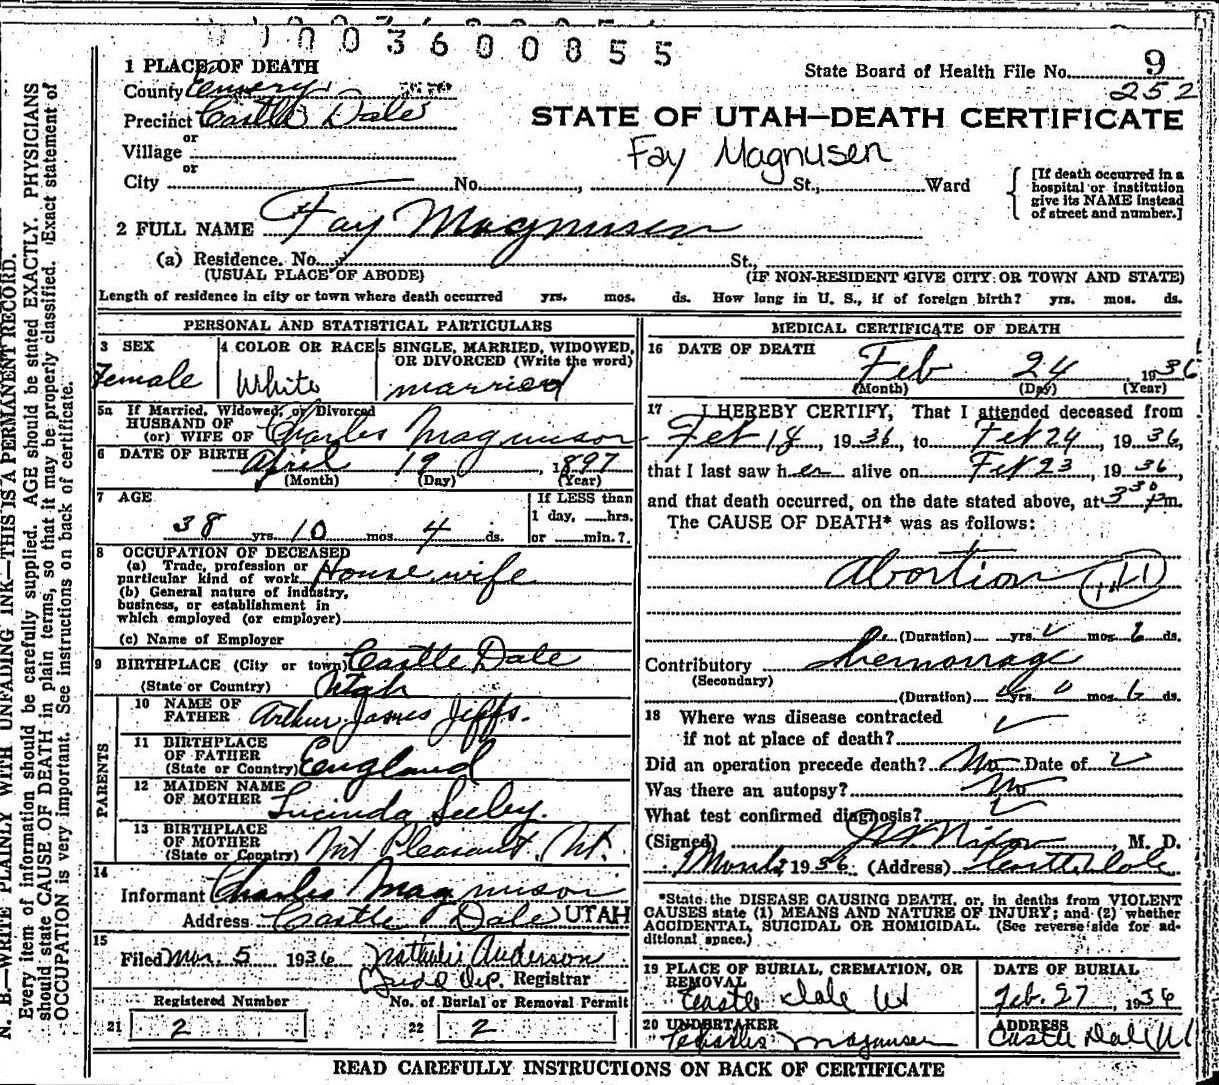 0003600855
1 PLACE OF DEATH
State Board of Health File No. 9
County Emery
252
Precinct Castle Dale
STATE OF UTAH—DEATH CERTIFICATE
or
Village
Fay Magnusen
or
City No. , St., Ward
[If death occurred in a hospital or institution give its NAME instead of street and number.]
2 FULL NAME Fay Magnusen
(a) Residence. No. St.,
(USUAL PLACE OF ABODE) (IF NON-RESIDENT GIVE CITY OR TOWN AND STATE)
Length of residence in city or town where death occurred yrs. mos. ds. How long in U. S., if of foreign birth? yrs. mos. ds.
PERSONAL AND STATISTICAL PARTICULARS
3 SEX 4 COLOR OR RACE 5 SINGLE, MARRIED, WIDOWED,
OR DIVORCED (Write the word)
Female White married
5a If Married, Widowed, or Divorced
HUSBAND OF
(or) WIFE OF Charles Magnuson
6 DATE OF BIRTH April 19, 1897
(Month) (Day) (Year)
7 AGE If LESS than
1 day, hrs.
38 yrs. 10 mos. 4 ds. or min.?
8 OCCUPATION OF DECEASED
(a) Trade, profession or
particular kind of work Housewife
(b) General nature of industry,
business, or establishment in
which employed (or employer)
(c) Name of Employer
9 BIRTHPLACE (City or town) Castle Dale
(State or Country) Utah
PARENTS
10 NAME OF
FATHER Arthur James Jeffs.
11 BIRTHPLACE
OF FATHER
(State or Country) England
12 MAIDEN NAME
OF MOTHER Lucinda Seeley.
13 BIRTHPLACE
OF MOTHER
(State or Country) Mt Pleasant, Ut.
14
Informant Charles Magnuson
Address Castle Dale UTAH
15
Filed Mar. 5 1936 Nathalie Anderson
Registrar
Registered Number No. of Burial or Removal Permit
21 2 22 2
MEDICAL CERTIFICATE OF DEATH
16 DATE OF DEATH
Feb 24 1936
(Month) (Day) (Year)
17 I HEREBY CERTIFY, That I attended deceased from
Feb 18, 1936, to Feb 24, 1936,
that I last saw her alive on Feb 23, 1936
and that death occurred, on the date stated above, at 3 30 pm.
The CAUSE OF DEATH* was as follows:
Abortion
(Duration) yrs. mos. 6 ds.
Contributory hemorrage
(Secondary)
(Duration) yrs. 0 mos. 6 ds.
18 Where was disease contracted
if not at place of death?
Did an operation precede death? No Date of
Was there an autopsy? No
What test confirmed diagnosis?
(Signed) Nixon, M. D.
1936 (Address) Castle Dale
*State the DISEASE CAUSING DEATH, or, in deaths from VIOLENT
CAUSES state (1) MEANS AND NATURE OF INJURY; and (2) whether
ACCIDENTAL, SUICIDAL OR HOMICIDAL. (See reverse side for ad-
ditional space.)
19 PLACE OF BURIAL, CREMATION, OR
REMOVAL
Castle Dale Ut
DATE OF BURIAL
Feb. 27, 1936
20 UNDERTAKER
Charles Magnusen
ADDRESS
Castle Dale Ut
READ CAREFULLY INSTRUCTIONS ON BACK OF CERTIFICATE
N. B.—WRITE PLAINLY WITH UNFADING INK—THIS IS A PERMANENT RECORD.
Every item of information should be carefully supplied. AGE should be stated EXACTLY. PHYSICIANS
should state CAUSE OF DEATH in plain terms, so that it may be properly classified. Exact statement of
OCCUPATION is very important. See instructions on back of certificate.